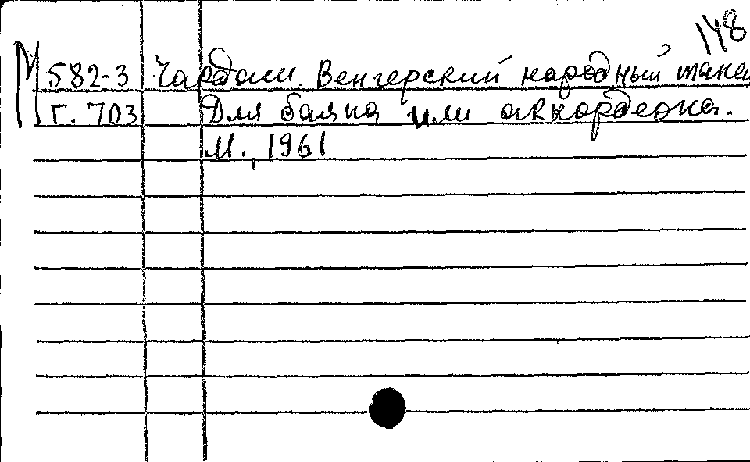 148
М 582-3 Чардаш. Венгерский народный тане
Г. 703 Для баяна или аккордеона.
М., 1961